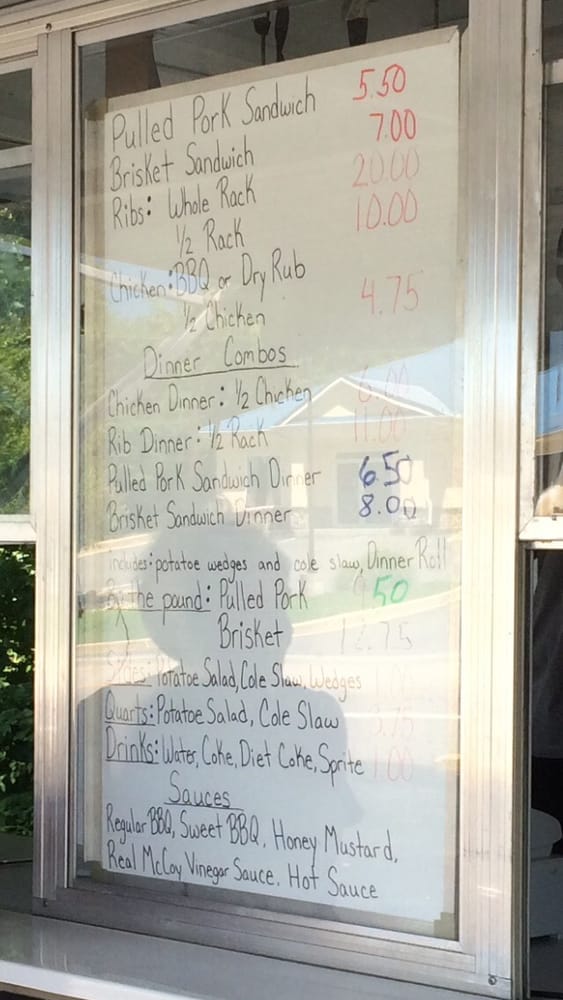 Pulled Pork Sandwich 5.50
Brisket Sandwich 7.00
Ribs: Whole Rack 20.00
1/2 Rack 10.00
Chicken: BBQ or Dry Rub
1/2 Chicken 4.75
Dinner Combos
Chicken Dinner: 1/2 Chicken 6.00
Rib Dinner: 1/2 Rack 11.00
Pulled Pork Sandwich Dinner 6.50
Brisket Sandwich Dinner 8.00
includes: potatoe wedges and cole slaw, Dinner Roll
By the pound: Pulled Pork 9.50
Brisket 12.75
Sides: Potatoe Salad, Cole Slaw, Wedges 1.00
Quarts: Potatoe Salad, Cole Slaw
Drinks: Water, Coke, Diet Coke, Sprite 1.00
Sauces
Regular BBQ, Sweet BBQ, Honey Mustard,
Real McCoy Vinegar Sauce, Hot Sauce